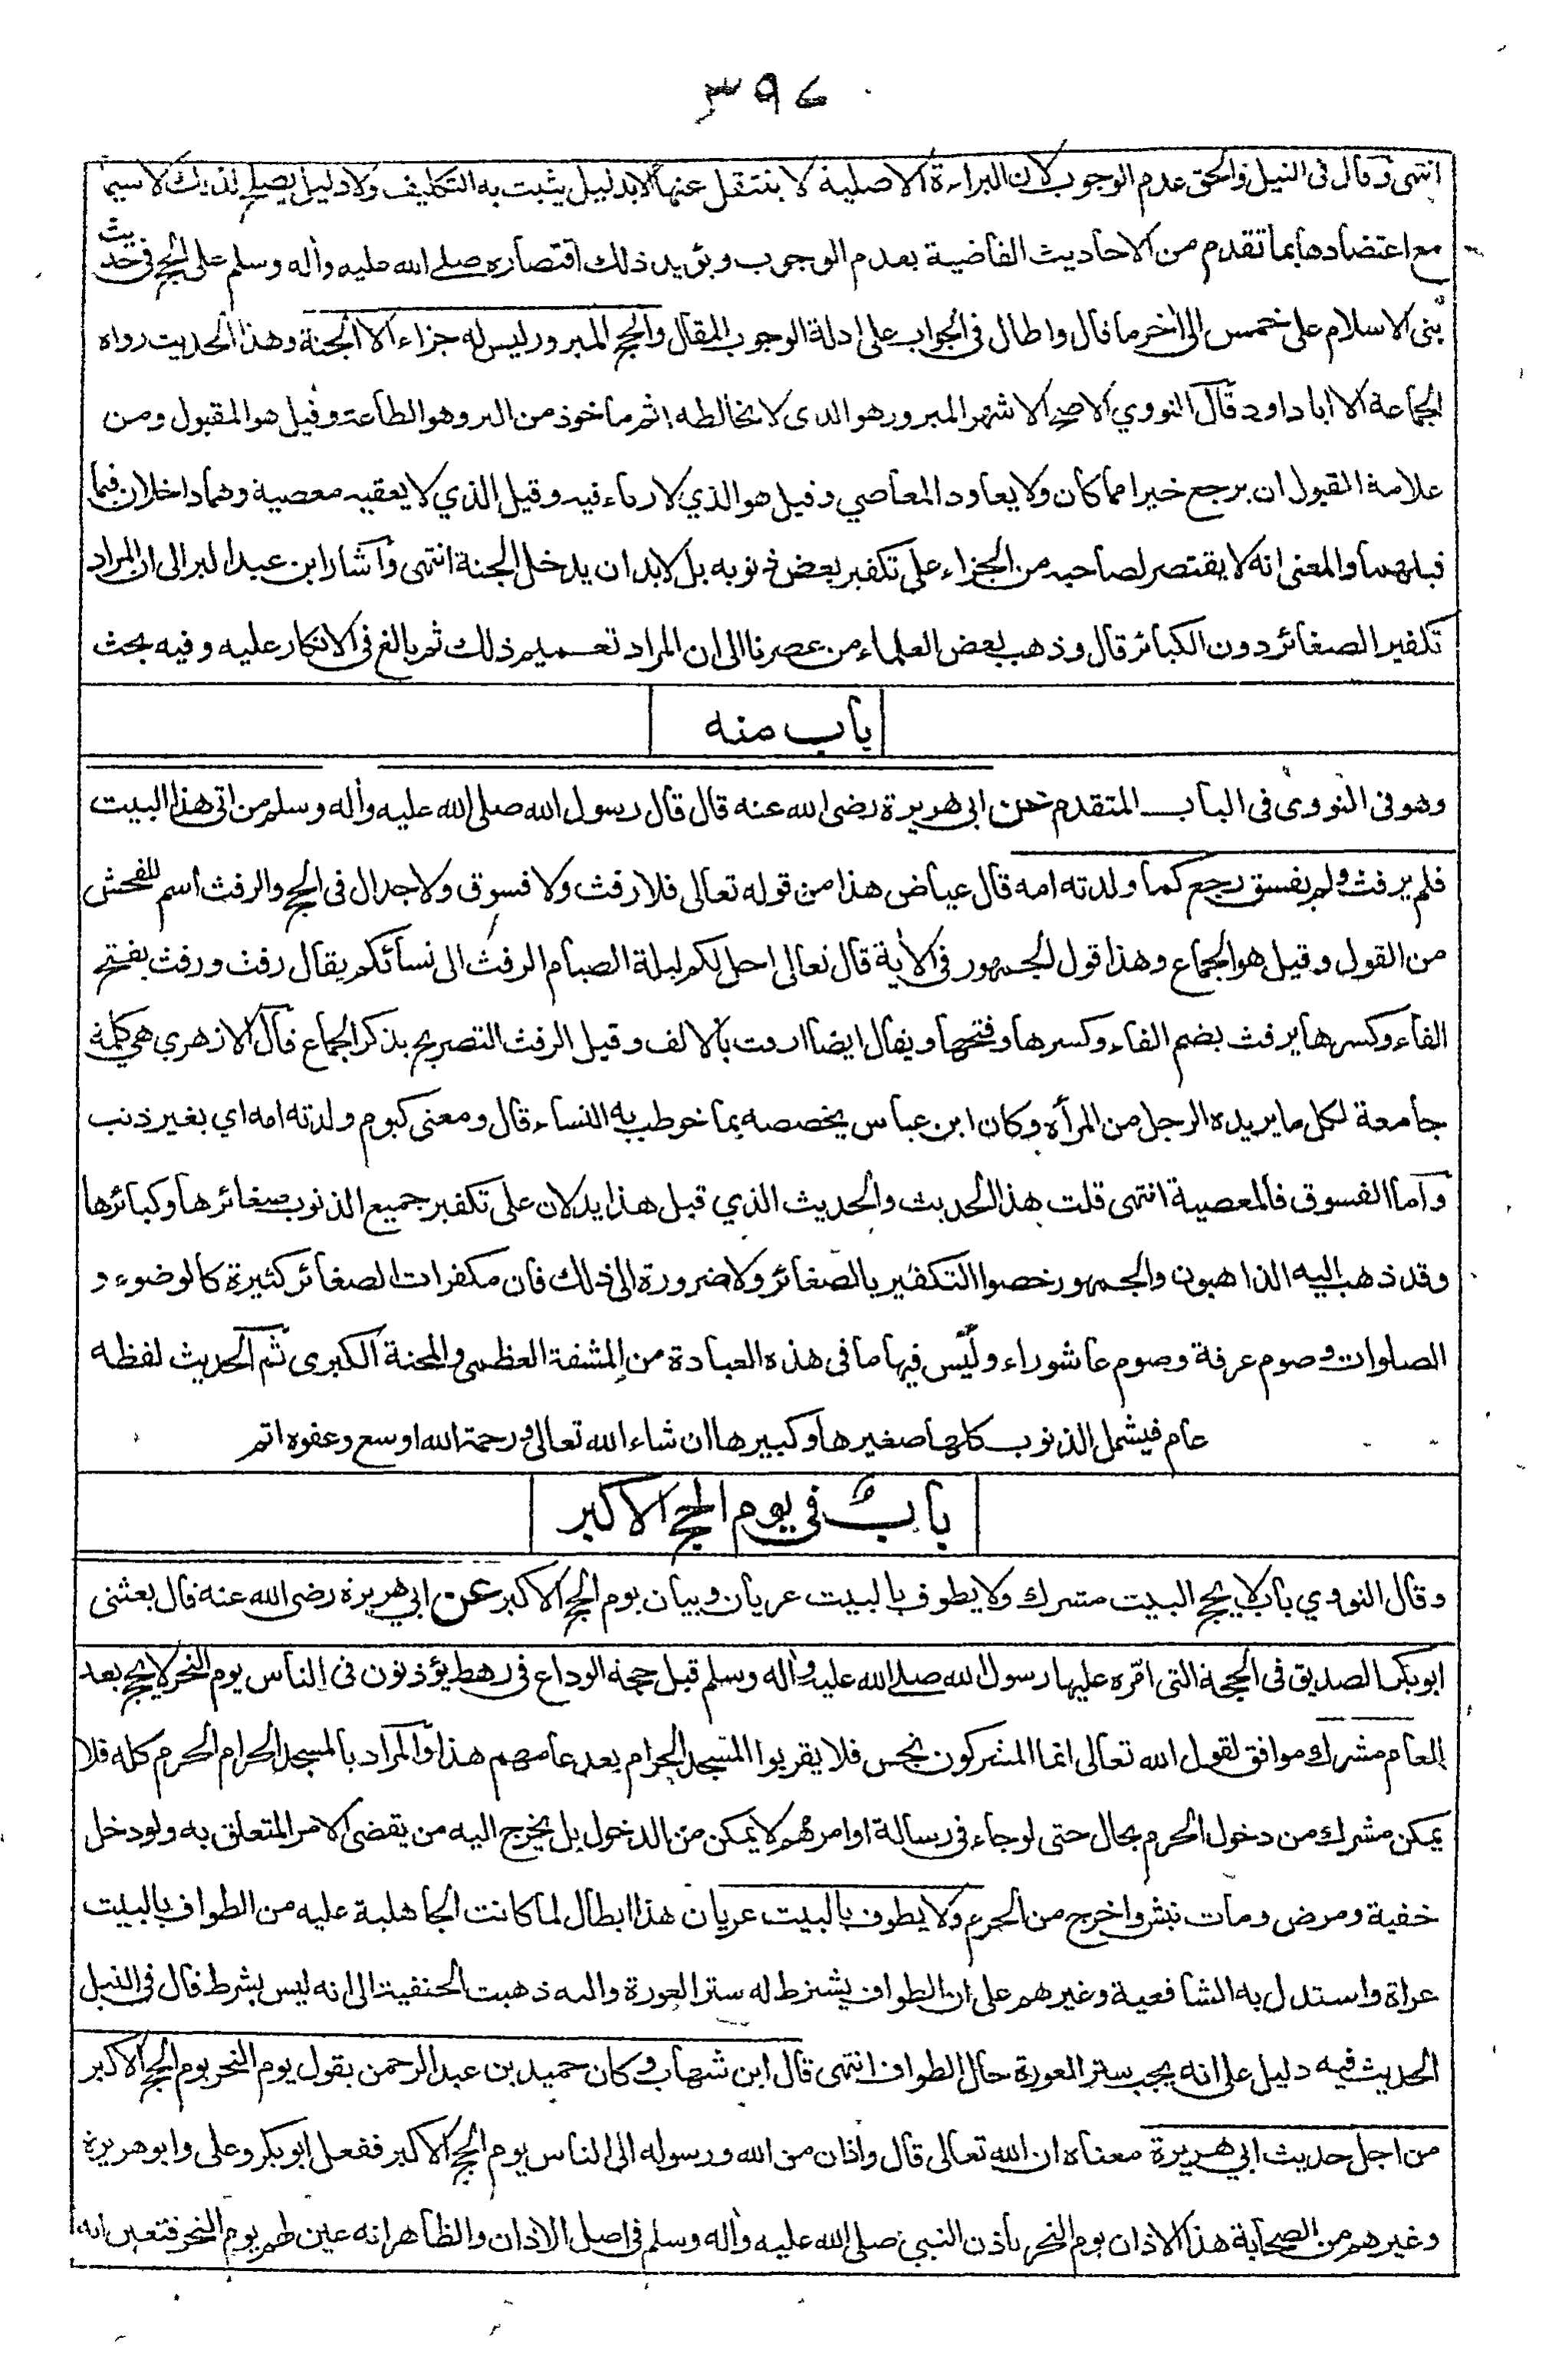 ٣٩٤
انتهى وقال فى النيل والحق عدم الوجوب لان البراءة الاصلية لا ينتقل عنها الا بدليل يثبت به التكليف ولا دليل يصلح لذلك لا سيما
مع اعتضادها بما تقدم من الاحاديث القاضية بعدم الوجوب ويؤيد ذلك اقتصاره صلى الله عليه واله وسلم على الحج فى حديث
بنى الاسلام على خمس الى أخر ما قال واطال فى الجواب على ادلة الوجوب المقال والحج المبرور ليس له جزاء الا الجنة وهذا الحديث رواه
الجماعة الا ابا داود قال النووي الاصح الاشهر المبرور هو الذى لا يخالطه اثم ماخوذ من البر وهو الطاعة وقيل هو المقبول ومن
علامة القبول ان يرجع خيرا مما كان ولا يعاود المعاصي وقيل هو الذي لا رياء فيه وقيل الذي لا يعقبه معصية وهما داخلان فيما
قبلهما والمعنى انه لا يقتصر لصاحبه من الجزاء على تكفير بعض ذنوبه بل لا بد ان يدخل الجنة انتهى وأشار ابن عبد البر الى ان المراد
تكفير الصغائر دون الكبائر قال وذهب بعض العلماء من عصرنا الى ان المراد تعميم ذلك ثم بالغ فى الانكار عليه وفيه بحث
باب منه
وهو فى النووى فى الباب المتقدم عن ابى هريرة رضى الله عنه قال قال رسول الله صلى الله عليه وأله وسلم من اتى هذا البيت
فلم يرفث ولم يفسق رجع كما ولدته امه قال عياض هذا من قوله تعالى فلا رفث ولا فسوق ولا جدال فى الحج والرفث اسم للفحش
من القول وقيل هو الجماع وهذا قول الجمهور فى الأية قال تعالى احل لكم ليلة الصيام الرفث الى نسائكم يقال رفث ورفث بفتح
الفاء وكسرها يرفث بضم الفاء وكسرها وفتحها ويقال ايضا ارفث بالالف وقيل الرفث التصريح بذكر الجماع قال الازهري هى كلمة
جامعة لكل ما يريده الرجل من المرأه وكان ابن عباس يخصصه بما خوطب به النساء قال ومعنى كيوم ولدته امه اي بغير ذنب
وأما الفسوق فالمعصية انتهى قلت هذا الحديث والحديث الذي قبل هذا يدلان على تكفير جميع الذنوب صغائرها وكبائرها
وقد ذهب اليه الذاهبون والجمهور خصوا التكفير بالصغائر ولا ضرورة الى ذلك فان مكفرات الصغائر كثيرة كالوضوء و
الصلوات وصوم عرفة وصوم عاشوراء وليس فيها ما فى هذه العبادة من المشقة العظمى والمحنة الكبرى ثم الحديث لفظه
عام فيشمل الذنوب كلها صغيرها وكبيرها ان شاء الله تعالى ورحمة الله اوسع وعفوه اتم
باب فى يوم الحج الاكبر
وقال النووي باب لا يحج البيت مشرك ولا يطوف بالبيت عريان وبيان يوم الحج الاكبر عن ابي هريرة رضى الله عنه قال بعثنى
ابو بكر الصديق فى الحجة التى امّره عليها رسول الله صلى الله عليه وأله وسلم قبل حجة الوداع فى رهط يؤذنون فى الناس يوم النحر لا يحج بعد
العام مشرك موافق لقول الله تعالى انما المشركون نجس فلا يقربوا المسجد الحرام بعد عامهم هذا والمراد بالمسجد الحرام الحرم كله فلا
يمكن مشرك من دخول الحرم بحال حتى لو جاء فى رسالة او امر مهم لا يمكن من الدخول بل يخرج اليه من يقضى الامر المتعلق به ولو دخل
خفية ومرض ومات نبش واخرج من الحرم ولا يطوف بالبيت عريان هذا ابطال لما كانت الجاهلية عليه من الطواف بالبيت
عراة واستدل به الشافعية وغيرهم على ان الطواف يشترط له ستر العورة واليه ذهبت الحنفية الى انه ليس بشرط قال فى النيل
الحديث فيه دليل على انه يجب ستر العورة حال الطواف انتهى قال ابن شهاب وكان حميد بن عبد الرحمن يقول يوم النحر يوم الحج الاكبر
من اجل حديث ابي هريرة معناه ان الله تعالى قال واذان من الله ورسوله الى الناس يوم الحج الاكبر ففعل ابو بكر وعلى وابو هريرة
وغيرهم من الصحابة هذا الاذان يوم النحر باذن النبي صلى الله عليه وأله وسلم فى اصل الاذان والظاهر انه عين لهم يوم النحر فتعين انه